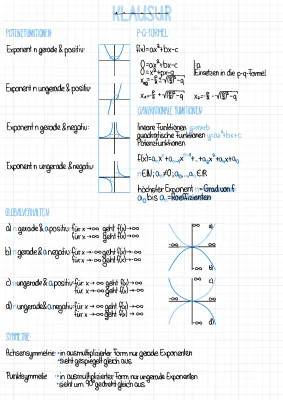 KLAUSUR
POTENZFUNKTIONEN
Exponent n gerade & positiv
Exponent n ungerade & positiv
Exponent n gerade & negativ
Exponent n ungerade & negativ
P-Q-FORMEL
f(x)=ax²+bx-c
0=ax²+bx-c |:a
0=x²+px-q |Einsetzen in die p-q-Formel
GANZRATIONALE FUNKTIONEN
lineare Funktionen
quadratische Funktionen y=ax²+bx+c
Potenzfunktionen
höchster Exponent → Grad von f
bis = Koeffizienten
GLOBALVERHALTEN
a) n gerade & a positiv: für x→∞ geht f(x)→∞
für x→-∞ geht f(x)→∞
b) n gerade & a negativ: für x→∞ geht f(x)→-∞
für x→-∞ geht f(x)→-∞
c) n ungerade & a positiv: für x→∞ geht f(x)→∞
für x→-∞ geht f(x)→-∞
d) n ungerade & a negativ: für x→∞ geht f(x)→-∞
für x→-∞ geht f(x)→∞
a)
b)
c)
d)
SYMMETRIE
Achsensymmetrie → in ausmultiplizierter Form nur gerade Exponenten
→ sieht gespiegelt gleich aus
Punktsymmetrie → in ausmultiplizierter Form nur ungerade Exponenten
→ sieht um gedreht gleich aus